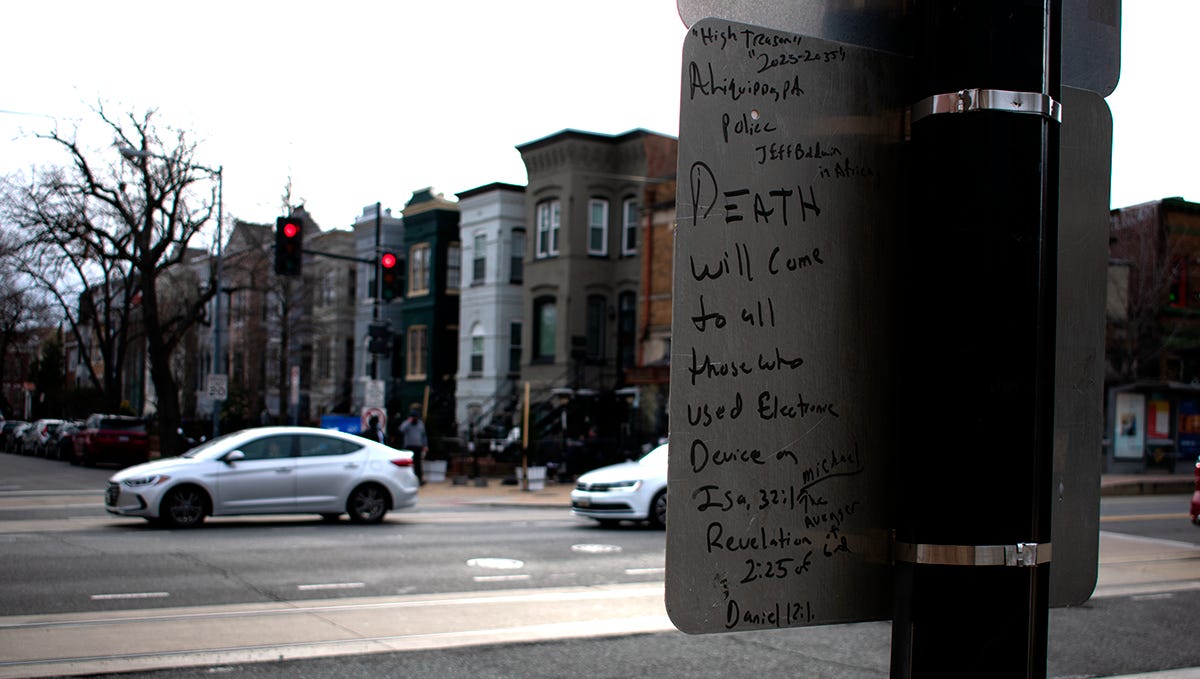 "High Treason"
"2025-2035"
Aliquippa, PA
Police
Jeff Baldwin
in Africa
DEATH
will come
to all
those who
used Electronic
Device on
michael
Isa, 32:1
The
Avenger
of
Revelation
God
2:25 of
Daniel 12:1.